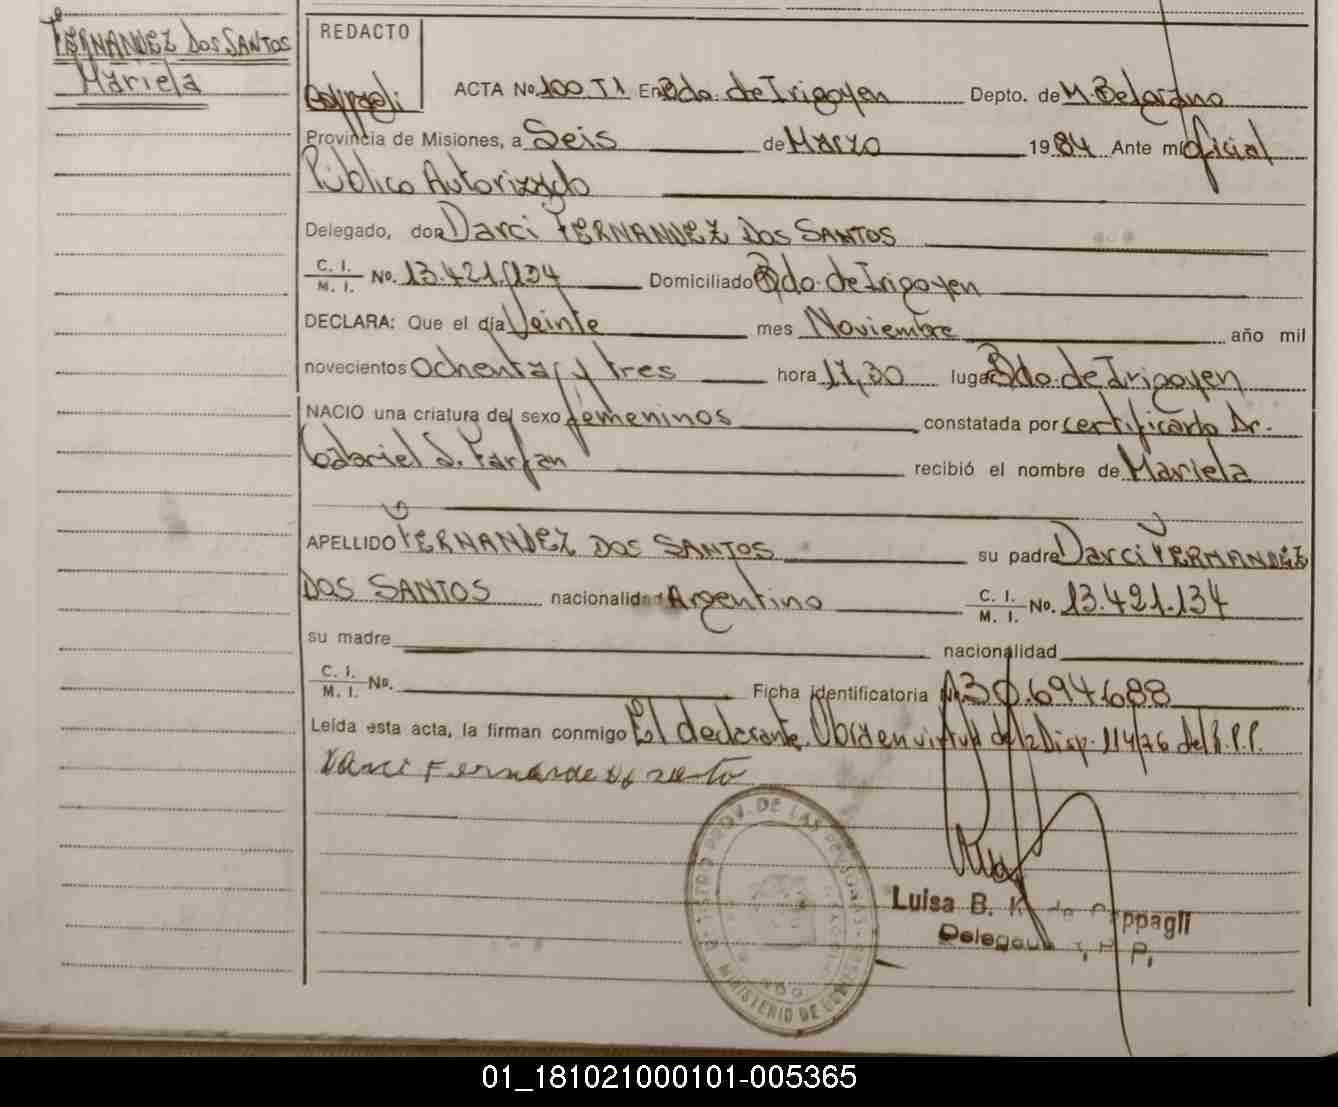 FERNANDEZ DOS SANTOS
Mariela
REDACTO
ACTA No. 100 T1 En Bdo. de Irigoyen Depto. de M. Belgrano
Provincia de Misiones, a Seis de Marzo 1984 Ante mí Oficial
Público Autorizado
Delegado, don Darci FERNANDEZ DOS SANTOS
C. I. / M. I. No. 13.421.134 Domiciliado Bdo. de Irigoyen
DECLARA: Que el día Veinte mes Noviembre año mil
novecientos ochenta y tres hora 17,30 lugar Bdo. de Irigoyen
NACIO una criatura del sexo femeninos constatada por certificado Dr.
Gabriel S. Farfan recibió el nombre de Mariela
APELLIDO FERNANDEZ DOS SANTOS su padre Darci FERNANDEZ
DOS SANTOS nacionalidad Argentino C. I. / M. I. No. 13.421.134
su madre nacionalidad
C. I. / M. I. No. Ficha identificatoria No. 30.694.688
Leída esta acta, la firman conmigo El declarante. Obra en virtud de la Disp. 114/76 del R.P.P.
Darci Fernande
PROV. DE LAS PERSONAS
MINISTERIO DE GOBIERNO
Luisa B. K. de Coppagli
Delegada R. P. P.
01_181021000101-005365